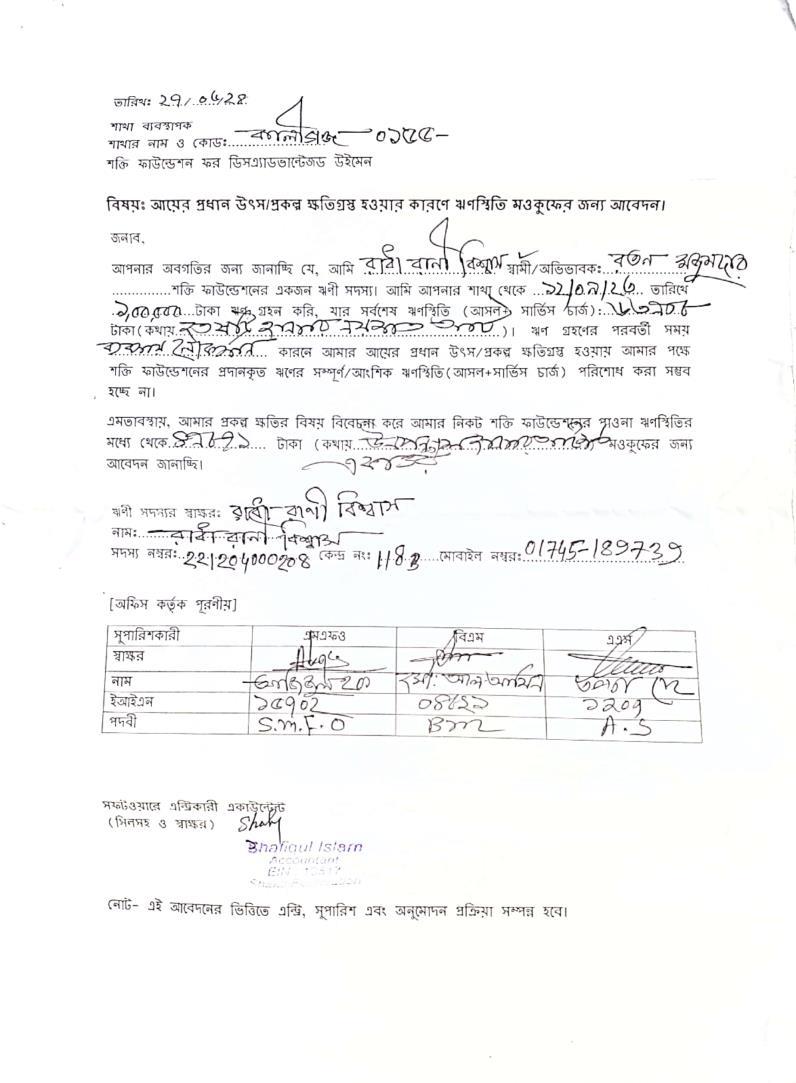 তারিখঃ ২৭/০৫/২৪
শাখা ব্যবস্থাপক
শাখার নাম ও কোডঃ কালীগঞ্জ ০১৫৫-
শক্তি ফাউন্ডেশন ফর ডিসএ্যাডভান্টেজড উইমেন
বিষয়ঃ আয়ের প্রধান উৎস/প্রকল্প ক্ষতিগ্রস্থ হওয়ার কারণে ঋণস্থিতি মওকুফের জন্য আবেদন।
জনাব,
আপনার অবগতির জন্য জানাচ্ছি যে, আমি রাধী রানী বিশ্বাস স্বামী/অভিভাবকঃ রতন
শক্তি ফাউন্ডেশনের একজন ঋণী সদস্য। আমি আপনার শাখা থেকে তারিখে
১,০০,০০০ টাকা ঋণ গ্রহন করি, যার সর্বশেষ ঋণস্থিতি (আসল+ সার্ভিস চার্জ):
টাকা(কথায় )। ঋণ গ্রহণের পরবর্তী সময়
কারনে আমার আয়ের প্রধান উৎস/প্রকল্প ক্ষতিগ্রস্থ হওয়ায় আমার পক্ষে
শক্তি ফাউন্ডেশনের প্রদানকৃত ঋণের সম্পূর্ণ/আংশিক ঋণস্থিতি(আসল+সার্ভিস চার্জ) পরিশোধ করা সম্ভব
হচ্ছে না।
এমতাবস্থায়, আমার প্রকল্প ক্ষতির বিষয় বিবেচনা করে আমার নিকট শক্তি ফাউন্ডেশনের পাওনা ঋণস্থিতির
মধ্যে থেকে টাকা (কথায় মওকুফের জন্য
আবেদন জানাচ্ছি।
ঋণী সদস্যর স্বাক্ষরঃ রাধী রাণী বিশ্বাস
নামঃ রাধী রানী বিশ্বাস
সদস্য নম্বরঃ 221204000208 কেন্দ্র নংঃ 118 মোবাইল নম্বরঃ 01745-189739
[অফিস কর্তৃক পূরণীয়]
সুপারিশকারী এমএফও বিএম এএস
স্বাক্ষর
নাম মোঃ আল আমিন
ইআইএন ১৫৭০২ ১২০৭
পদবী S.M.F.O BM A.S
সফটওয়ারে এন্ট্রিকারী একাউন্টেন্ট
(সিলসহ ও স্বাক্ষর)
Shafiqul Islam
Accountant
নোট- এই আবেদনের ভিত্তিতে এন্ট্রি, সুপারিশ এবং অনুমোদন প্রক্রিয়া সম্পন্ন হবে।